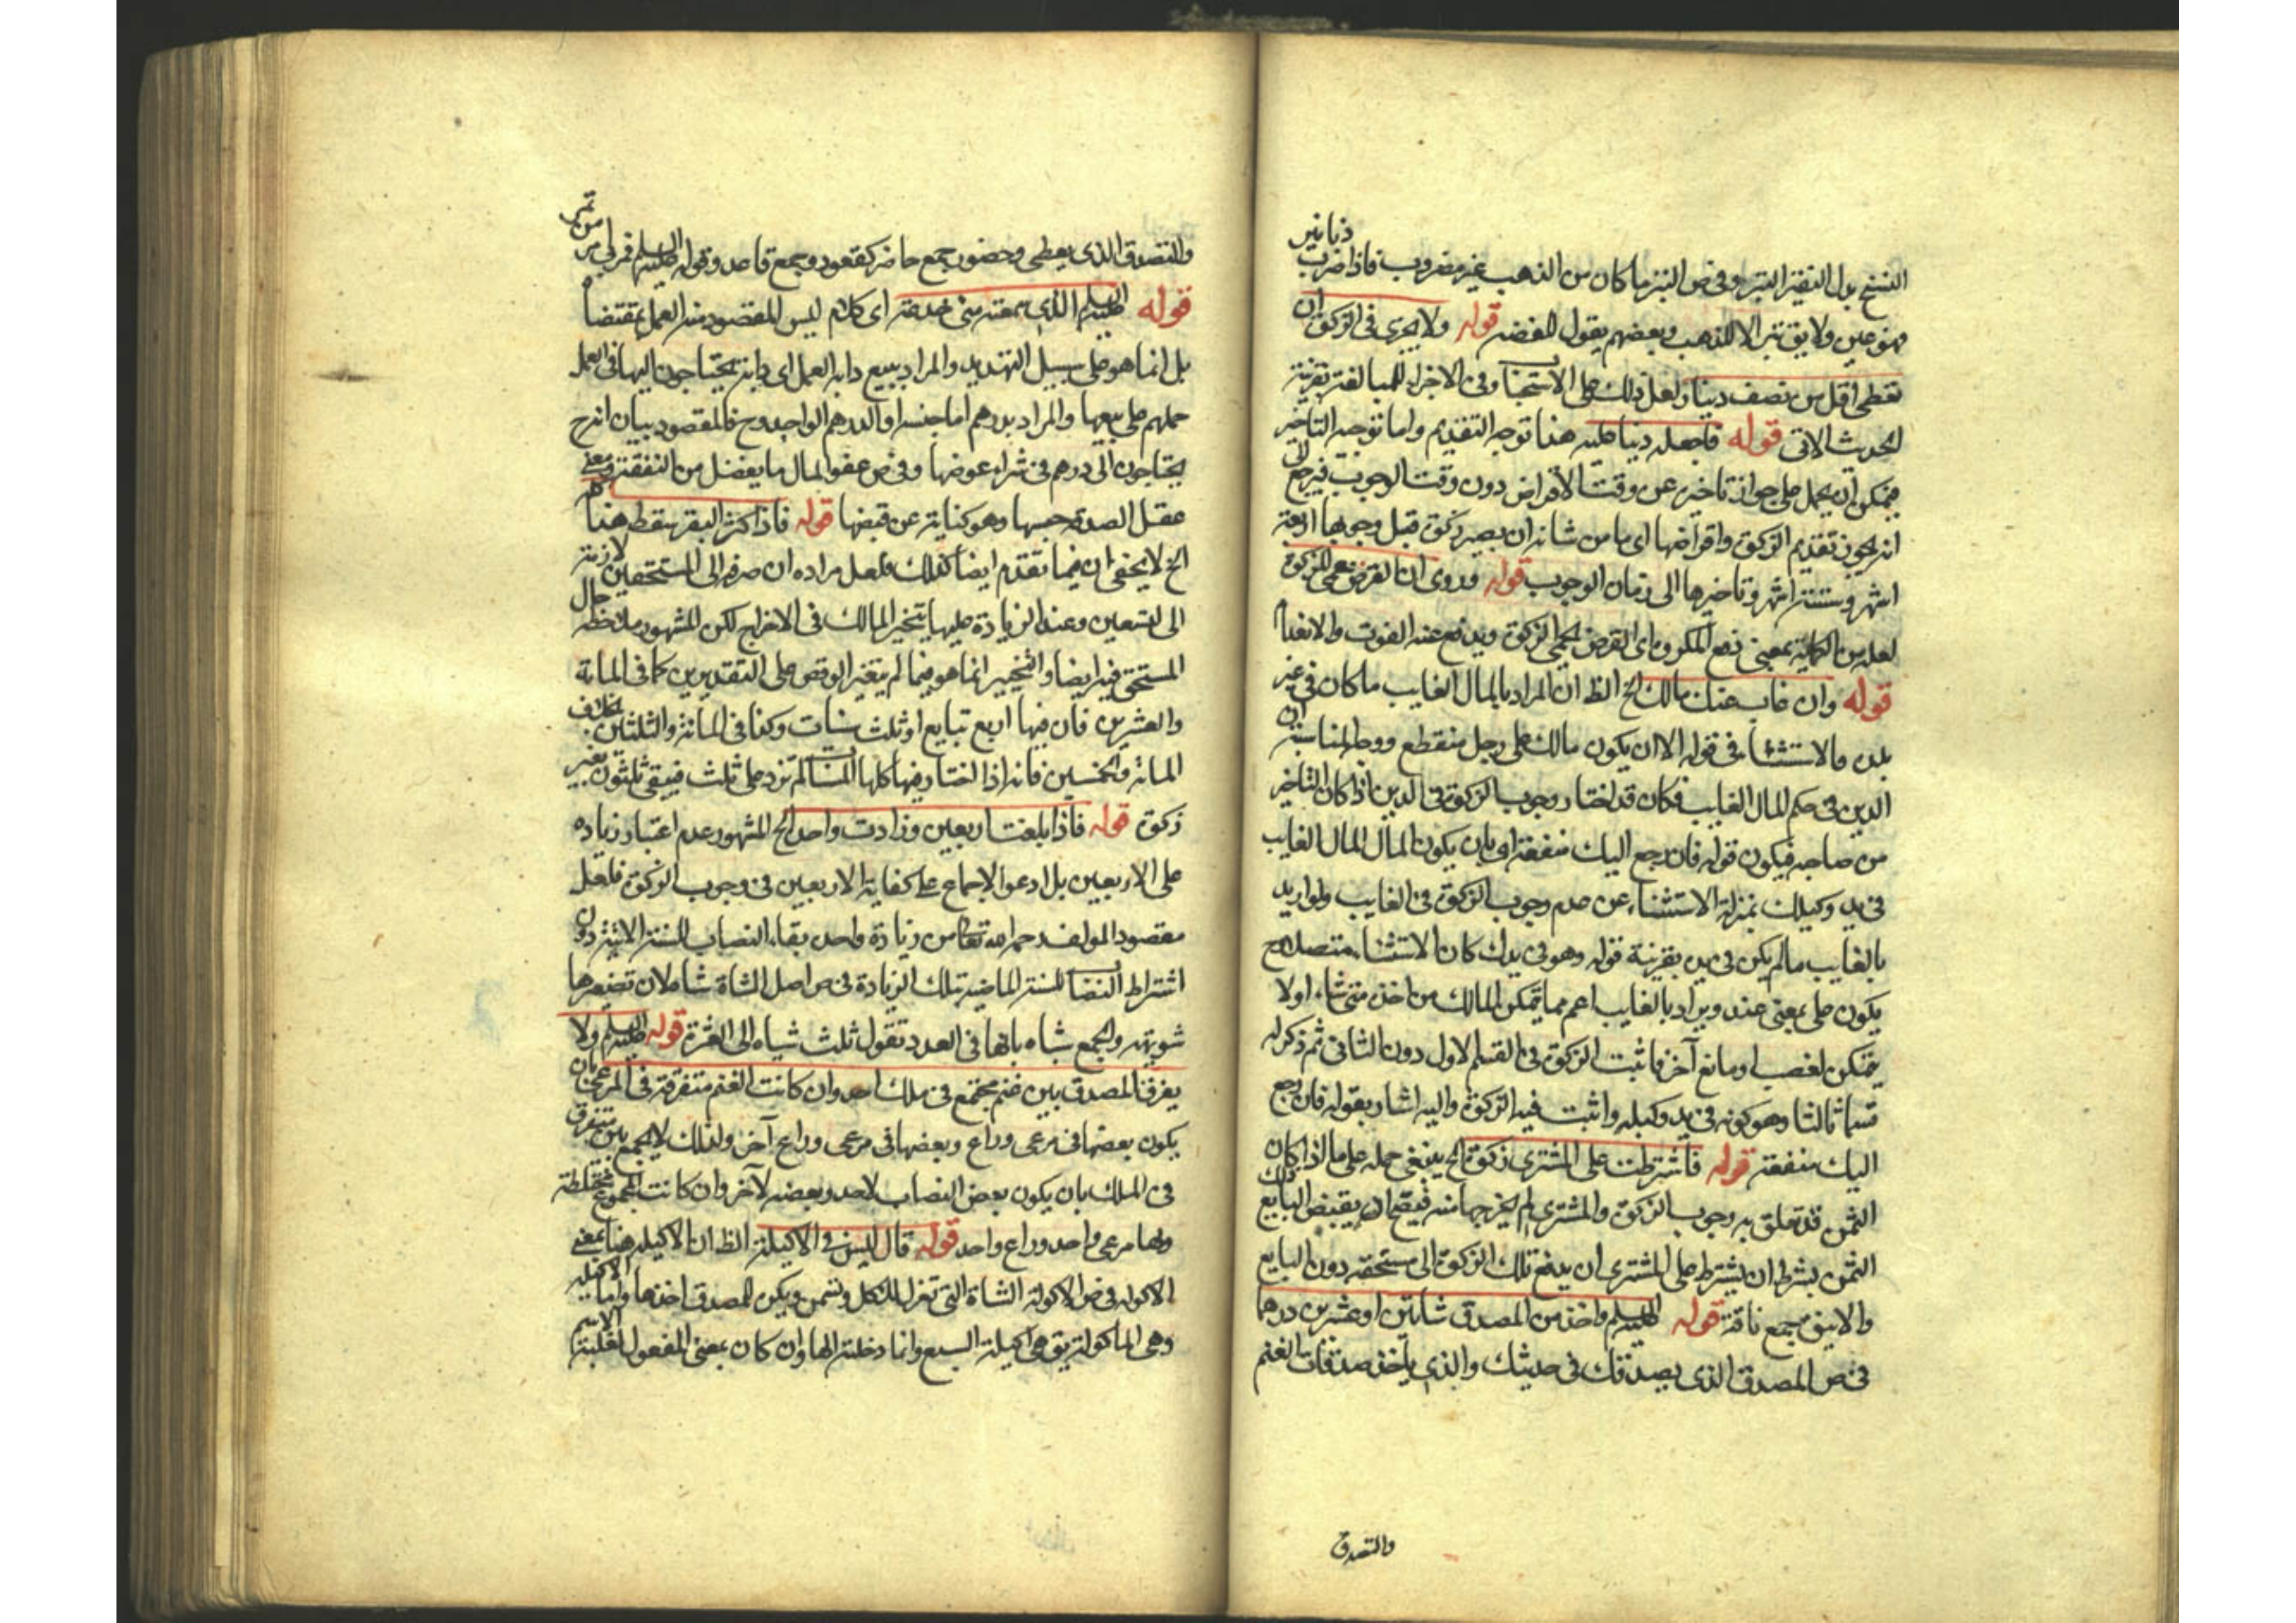 النسخ بدل النقير التبر وفى ص التبر ما كان من الذهب غير مضروب فاذا ضرب دنانير
فهو عين ولا يق تبر الا للذهب وبعضهم يقول للفضه قوله ولا يجزى فى الزكوة ان
تعطى اقل من نصف دينار لعل ذلك على الاستحبا وفى الاجزاء للمبالغة بقرينة
الحديث الاتى قوله فاجعله دينا عليه هذا توجيه التقديم واما توجيه التاخير
فيمكن ان يحمل على جواز تاخير عن وقت الافراض دون وقت الوجوب فيرجع الى
انه يجوز تقديم الزكوة واقراضها اى ما من شانه ان يصير زكوة قبل وجوبها اربعة
اشهر وستة اشهر وتاخيرها الى زمان الوجوب قوله وروى ان القرض حمى للزكوة
لعله من الحماية بمعنى دفع المكروه اى القرض يحمى الزكوة ويدفع عنه الفوت والانعدام
قوله وان غاب عنك مالك الخ الظ ان المراد بالمال الغايب ما كان فى غير
بلده والاستثنا فى قوله الا ان يكون مالك على رجل منقطع ووجه المناسبة ان
الدين فى حكم المال الغايب فكان قد اختار وجوب الزكوة فى الدين اذا كان التاخير
من صاحبه فيكون قوله فان رجع اليك منفعته اى بان يكون المال المال الغايب
فى يد وكيلك بمنزلة الاستثناء عن عدم وجوب الزكوة فى الغايب ولو اريد
بالغايب ما لم يكن فى يده بقرينة قوله وهو فى يدك كان الاستثناء متصلا وح
يكون على بمعنى عند ويراد بالغايب اعم مما يتمكن المالك من اخذه متى شاء او لا
يتمكن لغصب او مانع آخر فاثبت الزكوة فى القسم الاول دون الثانى ثم ذكر له
قسما ثالثا وهو كونه فى يد وكيله واثبت فيه الزكوة واليه اشار بقوله فان رجع
اليك منفعته قوله فاشترطت على المشترى زكوة الخ ينبغى حمله على ما اذا كان ذلك
الثمن قد تعلق به وجوب الزكوة والمشترى لم يخرجها منه فيصح ان يقبض البايع
الثمن بشرط ان يشترط على المشترى ان يدفع تلك الزكوة الى مستحقه دون البايع
والاينق جمع ناقة قوله عليه السلم واخذ من المصدق شاتين او عشرين درهما
فى ص المصدق الذى يصدقك فى حديثك والذى ياخذ صدقات الغنم
والتصدق
والمتصدق الذى يعطى وحضور جمع حاضر كقعود وجمع قاعد وقوله عليه السلم
قوله عليه السلم الذى سمعته منى خدعة اى كلام ليس المقصود منه العمل بمقتضاه
بل انما هو على سبيل التهديد والمراد ببيع دابه العمل اى دابة يحتاجون اليها فى العمل
حملهم على بيعها والمراد بدرهم اما جنسه او الدرهم الواحد وح فالمقصود بيان انه ح
يحتاجون الى درهم فى شراء عوضها وفى ص عفو المال ما يفضل من النفقة ومعنى
عقل الصدقه حبسها وهو كناية عن قبضها قوله فاذا كثر البقر سقط هذا كله
الخ لا يخفى ان فيما تقدم ايضا كذلك فلعل مراده ان صرفه الى المستحقين لازم
الى التسعين وعند الزيادة عليها يتخير المالك فى الاخراج لكن المشهور ملاحظة حال
المستحق فيه ايضا والتخيير انما هو فيما لم يتغير الوقص على التقديرين كما فى المائة
والعشرين فان فيها اربع تبايع او ثلث مسنات وكذا فى المائة والثلثين بخلاف
المائة والخمسين فانه اذا اختار فيها كلها المسنا لم تزد على ثلث فيبقى ثلثون بغير
زكوة قوله فاذا بلغت اربعين وزادت واحدة الخ المشهور عدم اعتبار زياده
على الاربعين بل ادعوا الاجماع على كفاية الاربعين فى وجوب الزكوة فلعل
مقصود المولف رحمه الله تعالى من زيادة واحدة بقاء النصاب للسنة الاتية دون
اشتراط النصا للسنة الماضية بتلك الزيادة فى ص اصل الشاة شاهة لان تصغيرها
شويهه والجمع شياه بالهاء فى العدد تقول ثلث شياه الى العشرة قوله عليه السلم ولا
يفرق المصدق بين غنم مجتمع فى ملك احد وان كانت الغنم متفرقة فى المرعى بان
يكون بعضها فى مرعى وراع وبعضها فى مرعى وراع آخر ولذلك لا يجمع بين متفرق
فى الملك بان يكون بعض النصاب لاحد وبعضه لآخر وان كانت المجموع مختلطة
ولها مرعى واحد وراع واحد قوله قال ليس فى الاكيلة الظ ان الاكيله هنا بمعنى
الاكوله فى ص الاكولة الشاة التى تعزل للاكل وتسمن ويكره للمصدق اخذها واما الاكيله
وهى الماكولة يق هى اكيلة السبع وانما دخلته الهاء وان كان بمعنى المفعول لغلبة الاسم